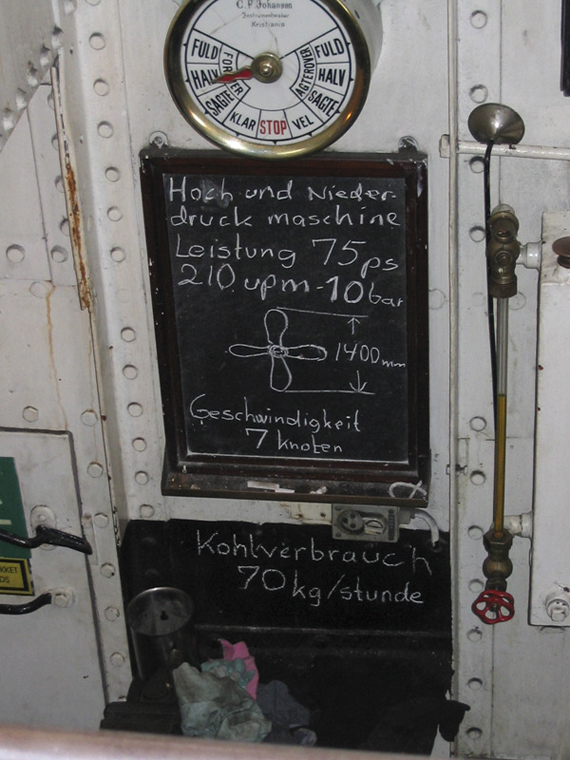 C. F. Johansen
Instrumentmaker
Kristiania
FULD
HALV
SAGTE
FOROVER
KLAR
STOP
VEL
SAGTE
HALV
FULD
AGTEROVER
Hoch und Nieder-
druck maschine
Leistung 75 ps
210 upm - 10 bar
1400 mm
Geschwindigkeit
7 knoten
Kohlverbrauch
70 kg/stunde